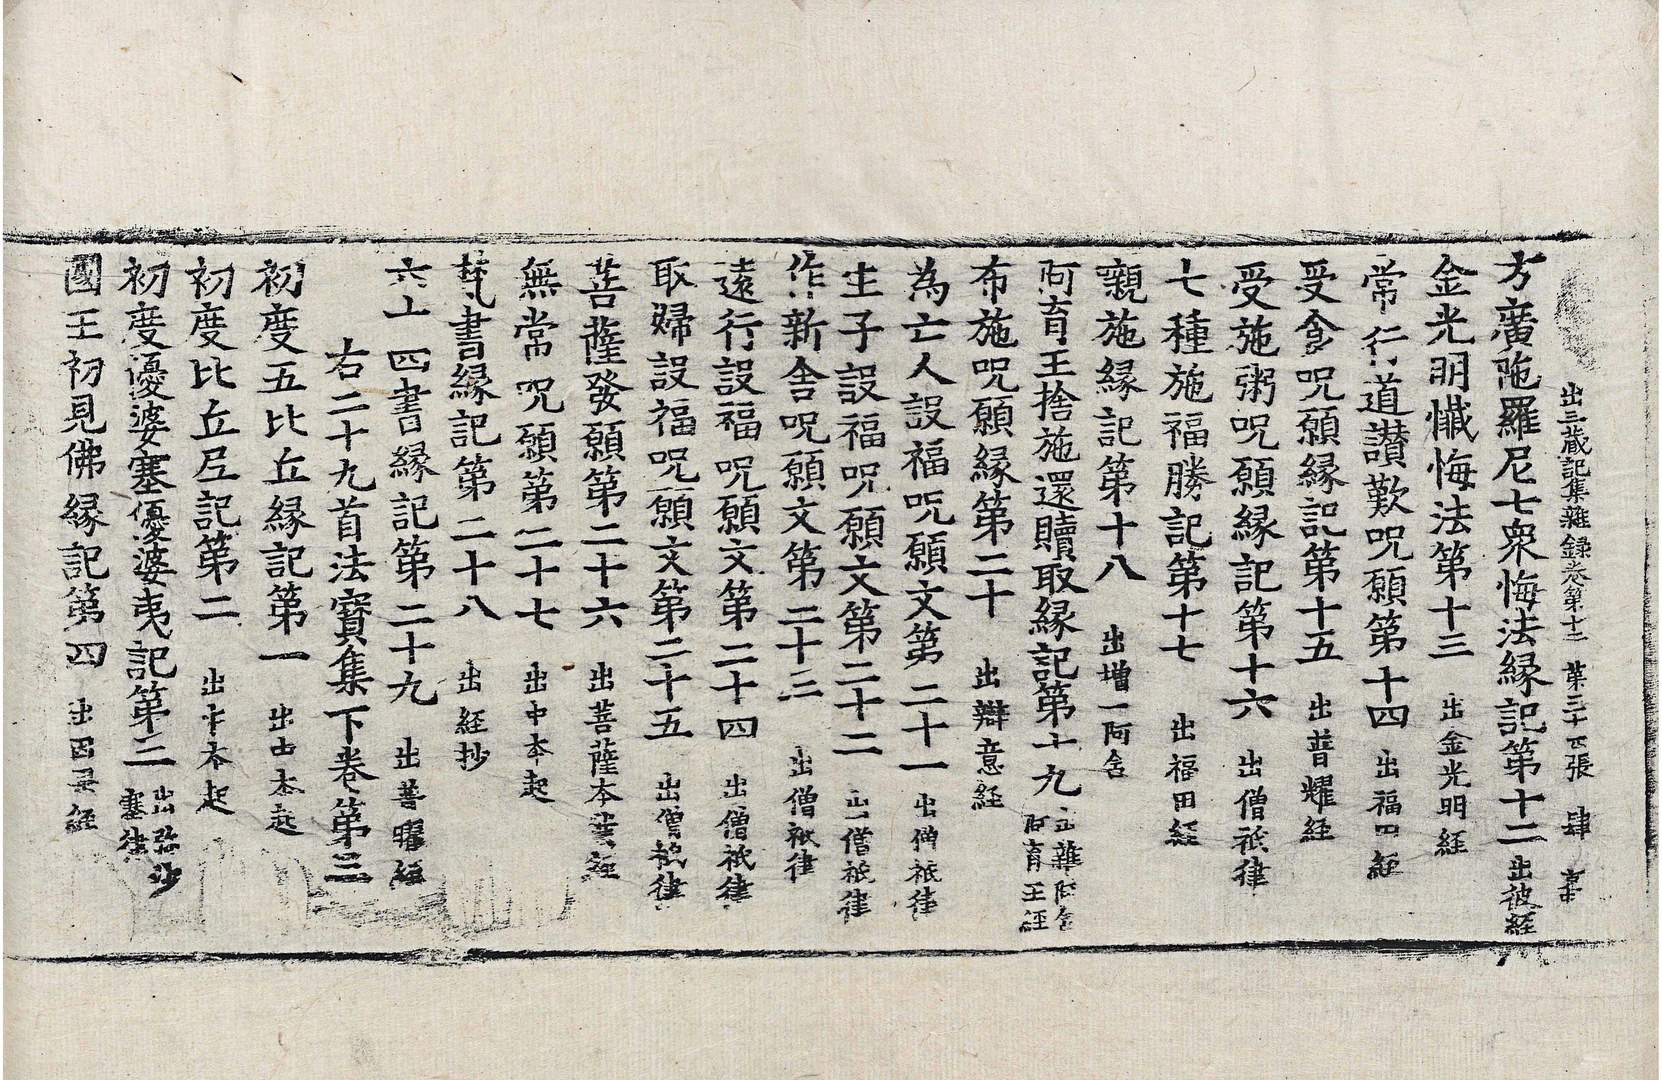 出三蔵記集雜録卷第十二 第三十四張 肆
方廣陁羅尼七衆悔法縁記第十二 出彼経
金光明懺悔法第十三 出金光明経
常行道讃歎呪願第十四 出福田経
受食呪願縁記第十五 出普耀経
受施粥呪願縁記第十六 出僧祇律
七種施福勝記第十七 出福田経
親施縁記第十八 出增一阿含
阿育王捨施還贖取縁記第十九 出雜阿含
阿育王経
布施呪願縁第二十 出辯意経
為亡人設福呪願文第二十一 出僧祇律
生子設福呪願文第二十二 出僧祇律
作新舍呪願文第二十三 出僧祇律
遠行設福呪願文第二十四 出僧祇律
取婦設福呪願文第二十五 出僧祇律
菩薩發願第二十六 出菩薩本業経
無常呪願第二十七 出中本起
梵書縁記第二十八 出経抄
六十四書縁記第二十九 出普曜経
右二十九首法寶集下卷第三
初度五比丘縁記第一 出中本起
初度比丘尼記第二 出中本起
初度優婆塞優婆夷記第三 出弥沙
塞律
國王初見佛縁記第四 出因果経